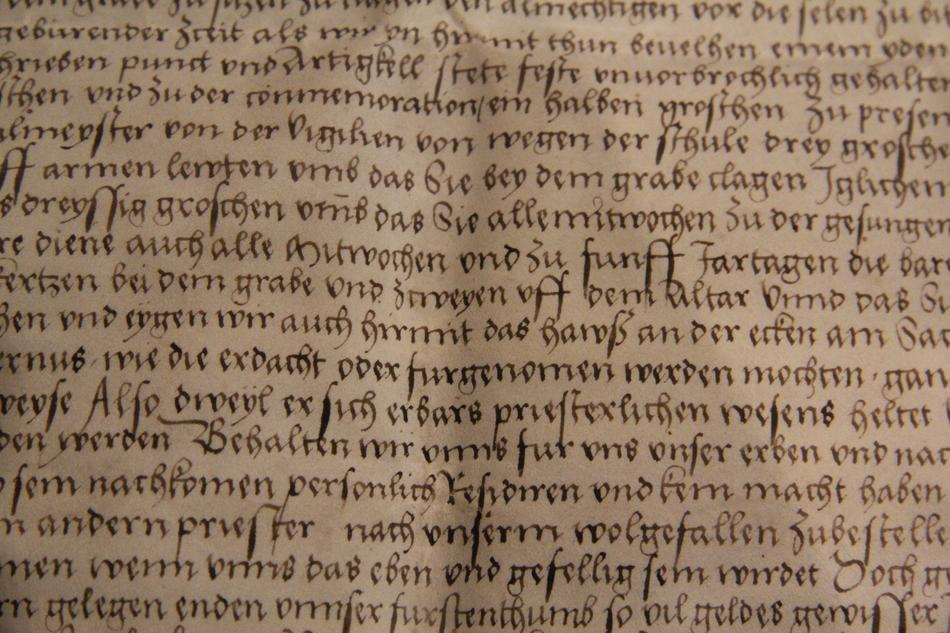 almechtigen vor die selen zu
geburender Zceit als wir yn hirmit thun bevelhen einem yden
hrieben punct vnd Artigkell stete feste vnuorbrochlich gehalten
schen vnd zu der conmemoration ein halben groschen Zu presen
almeyster von der Vigilien von wegen der schule drey grosche
ff armen lewten vmb das Sie bey dem grabe clagen Iglichen
s dreyssig groschen vmb das Sie alle mitwochen Zu der gesungen
re diene auch alle Mitwochen vnd Zu funff Jartagen die bare
kertzen bei dem grabe vnd Zcweyen vff dem Altar Vnnd das Si
hen vnd eygen wir auch hirmit das hawß an der ecken am Sac
ernus wie die erdacht oder furgenomen werden mochten gan
weyse Also dweyl er sich erbars priesterlichen wesens heltet
den werden Behalten wir vnns fur vns vnser erben vnd nac
sein nachkomen personlich Residiren vnd kein macht haben
n andern priester nach vnserm wolgefallen Zubestelle
men wenn vnns das eben vnd gefellig sein wirdet Doch ge
rn gelegen enden vnnser furstenthumb so vil geldes gewisser